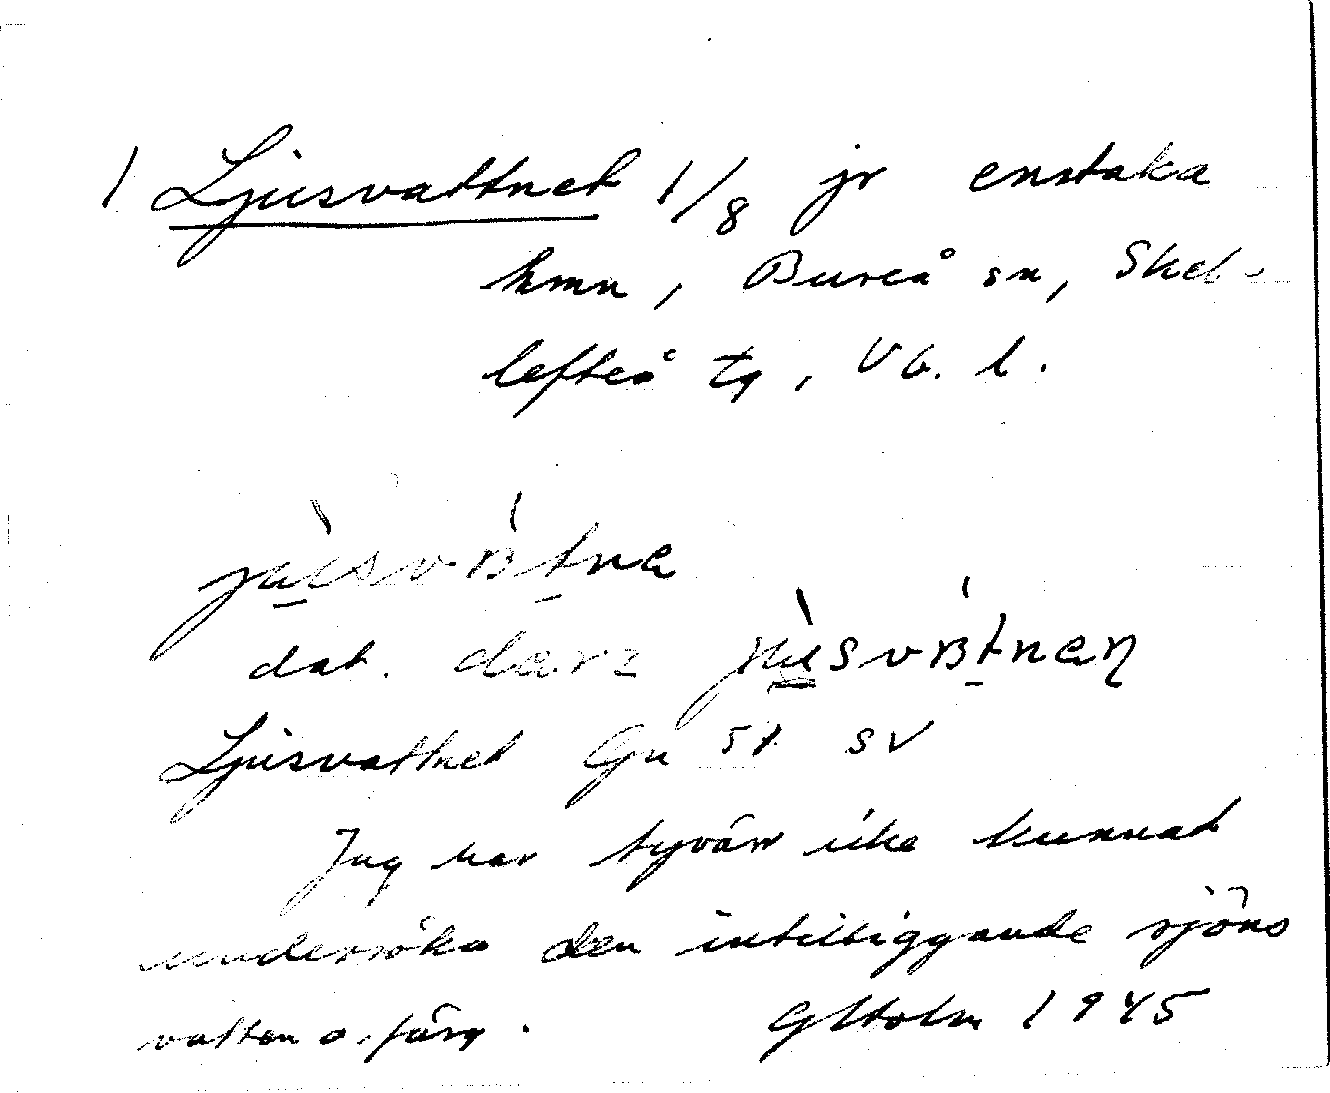 1 Ljusvattnet 1/8 jr enstaka
hmn, Bureå sn, Skel-
lefteå tg, Vb. l.
dat.
Ljusvattnet Gu 51 SV
Jag har tyvärr icke kunnat
undersöka den intilliggande sjöns
vatten o. färg. GHolm 1945